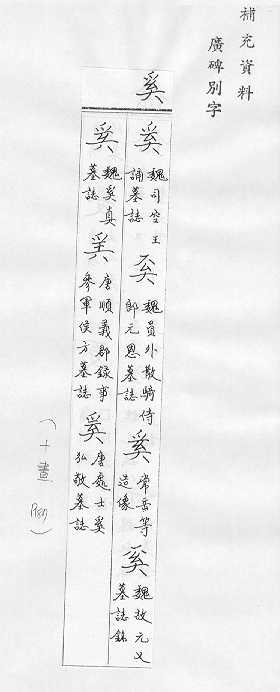 補充資料
廣碑別字
奚
奚 魏司空王誦墓誌
奚 魏員外散騎侍郎元恩墓誌
奚 常岳等造像
奚 魏故元乂墓誌銘
奚 魏奚真墓誌
奚 唐順義郡錄事參軍侯方墓誌
奚 唐處士奚弘敬墓誌
(十畫)